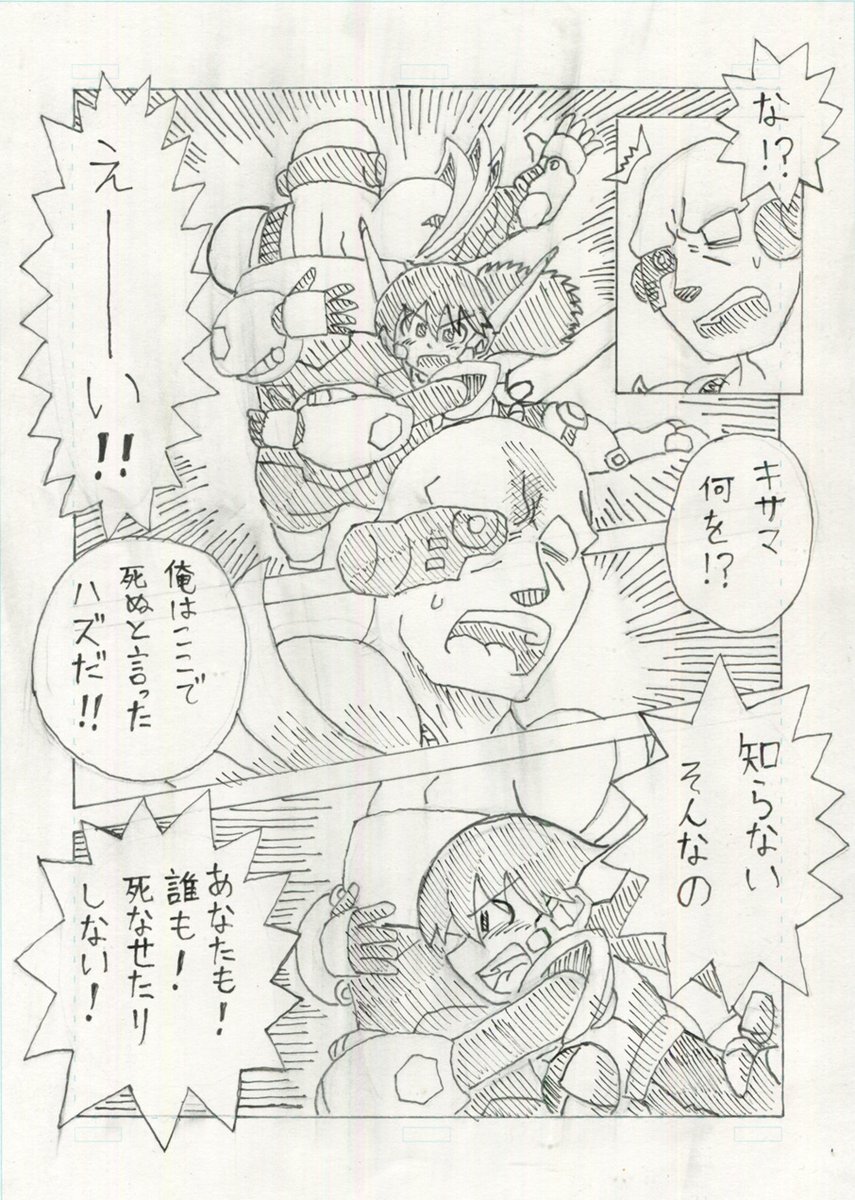 な!?
えーい!!
キサマ
何を!?
俺はここで
死ぬと言った
ハズだ!!
知らない
そんなの
あなたも!
誰も!
死なせたり
しない!